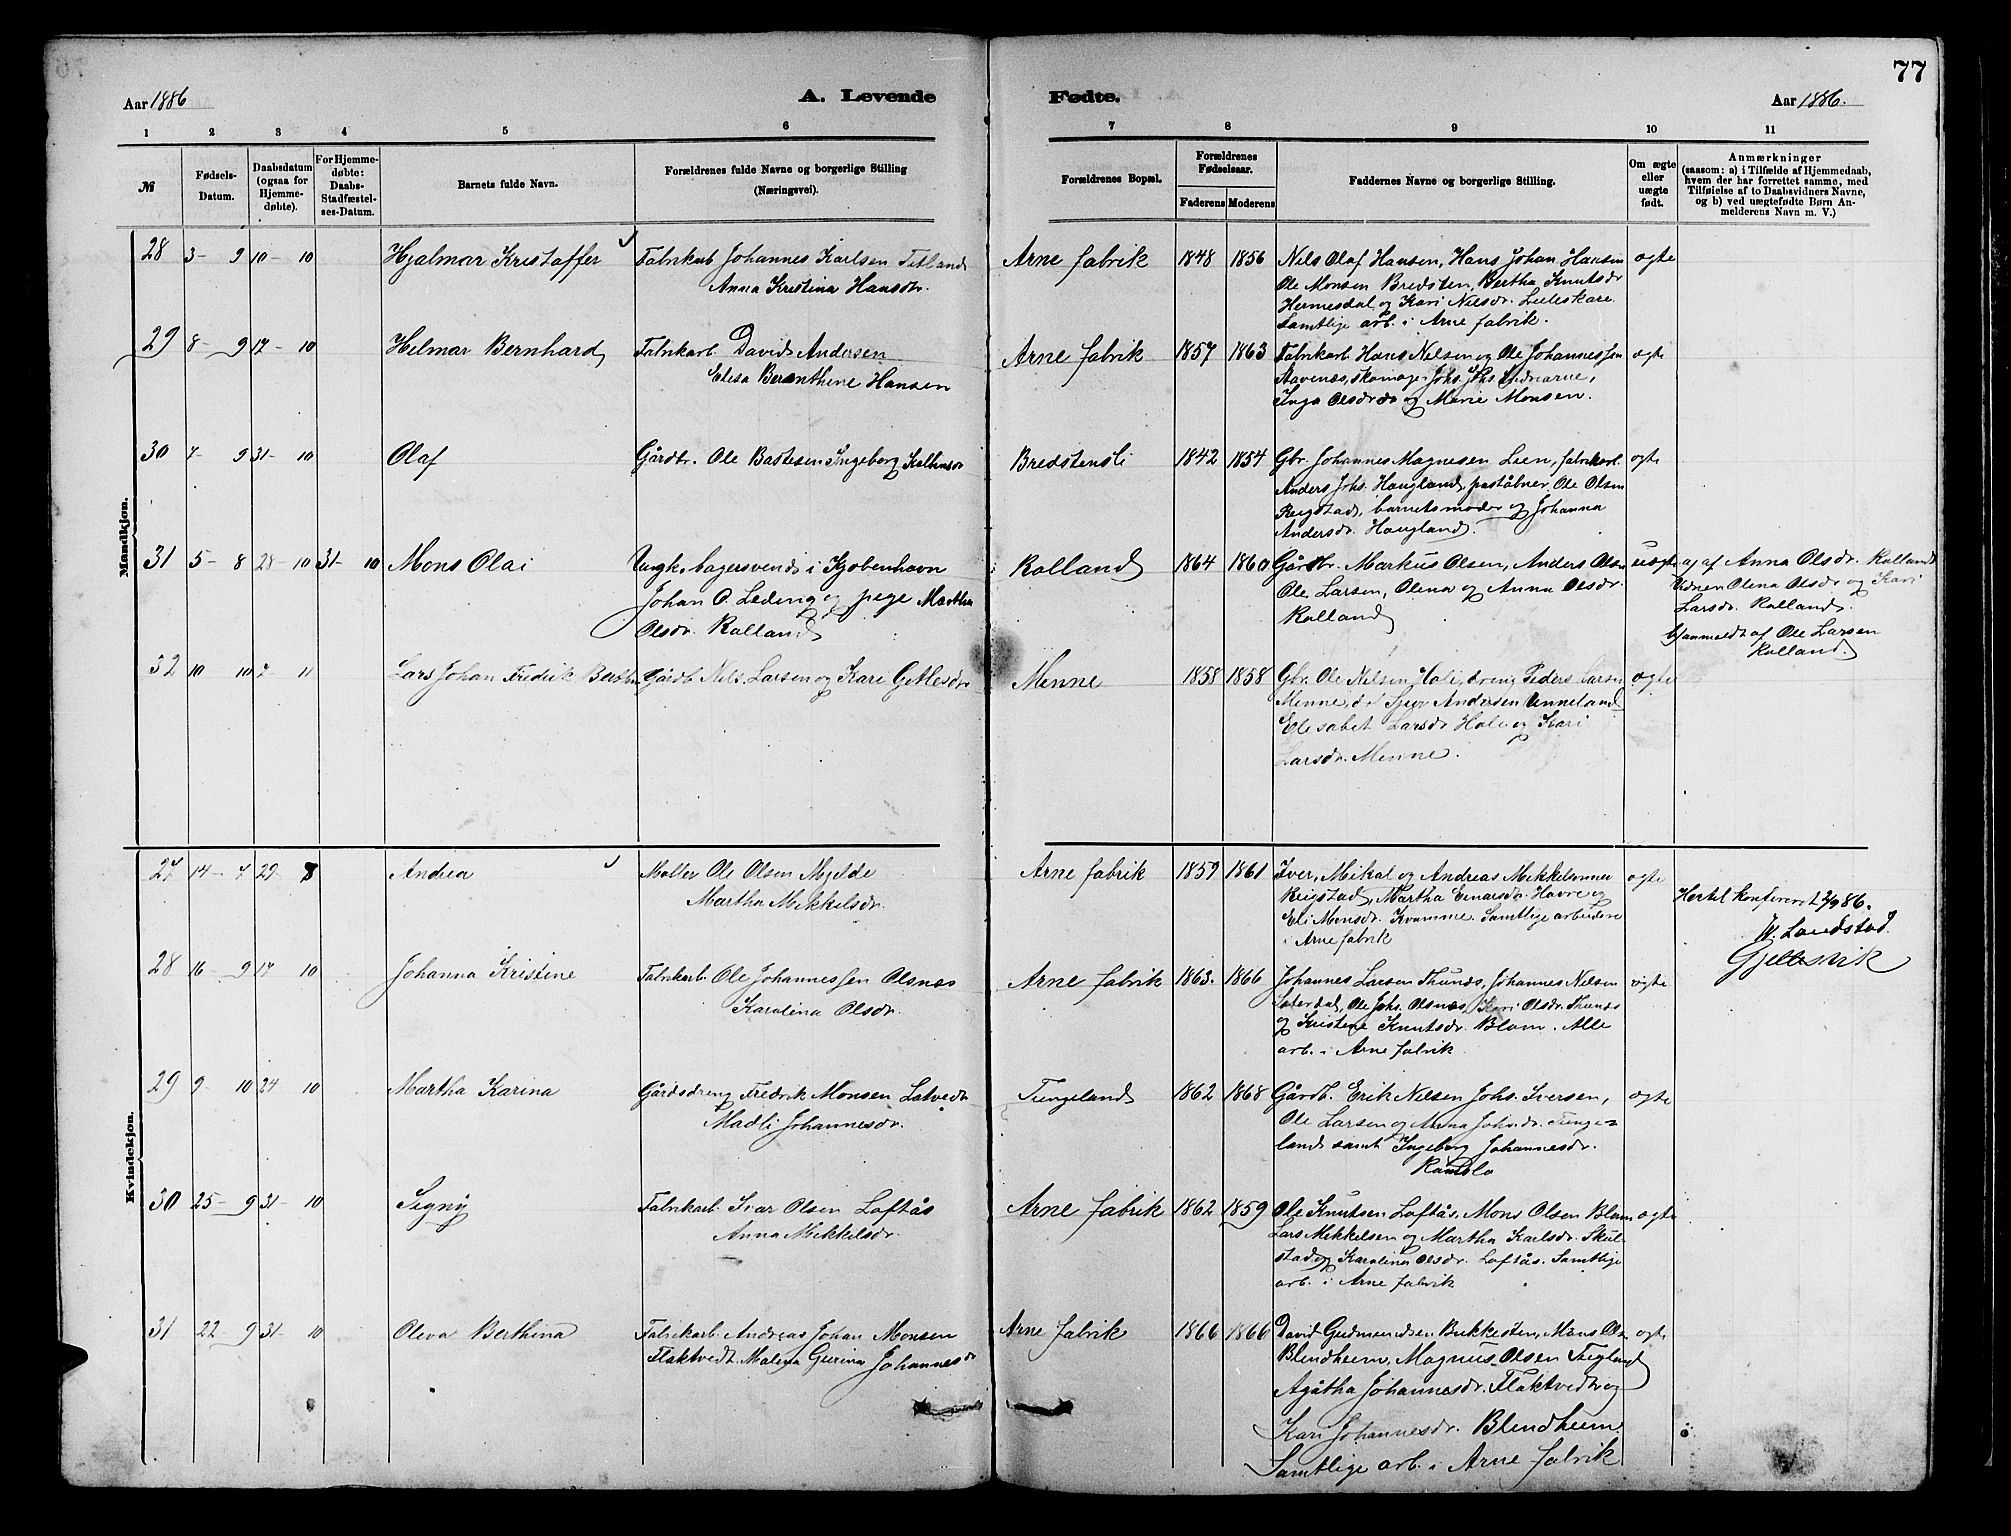 77
Aar 1886
A. Levende
Fødte.
Aar 1886.
1 2 3 4 5 6
7 8 9 10 11
№
Fødsels-
Datum.
Daabsdatum
(ogsaa for
Hjemme-
døbte).
For Hjemme-
døbte:
Daabs-
Stadfæstel-
ses-Datum.
Barnets fulde Navn.
Forældrenes fulde Navne og borgerlige Stilling
(Næringsvei).
Forældrenes Bopæl.
Forældrenes
Fødselsaar.
Faderens Moderens
Faddernes Navne og borgerlige Stilling.
Om ægte
eller
uægte
født.
Anmærkninger
(saasom: a) i Tilfælde af Hjemmedaab,
hvem der har forrettet samme, med
Tilføielse af to Daabsvidners Navne,
og b) ved uægtefødte Børn An-
melderens Navn m. V.)
Mandkjøn.
28 3- 9 10- 10 Hjalmar Kristoffer Fabrikarb Johannes Karlsen Titland
Anna Kristina Hansdtr.
Arne fabrik 1848 1856 Nils Olaf Hansen, Hans Johan Hansen ægte
Ole Monsen Bredsten, Bertha Knutsdr
Hermesdal og Kari Nilsdr. Lieleskare
Samtlige arb. i Arne fabrik.
29 8- 9 17- 10 Helmar Bernhard Fabrikarb. David Andersen
Elesa Beranthine Hansen
Arne fabrik 1857 1863 Fabrikarb Hans Nilsen og Ole Johannessen ægte
Stavenæs, skomager Johs. Johs. Indrearne,
Inga Olsdr og Marie Monsen.
30 7- 9 31- 10 Olaf Gårdbr. Ole Bastesen Ingeborg
Bredstensli 1842 1854 Gbr. Johannes Magnesen Lien, fabrikarb. ægte
Anders Johs. Haugland, poståbner Ole Olsen
Reigstad, barnets moder og Johanna
Andersdr. Haugland.
31 5- 8 28- 10 31- 10 Mons Olai Ungk. bagersvend i Kjøbenhavn
Johan O. Leding og pige Martha
Olsdr. Rolland
Rolland 1864 1860 Gårdbr. Markus Olsen, Anders Olsen uægte a) af Anna Olsdr. Rolland
Ole Larsen, Olena og Anna Olsdr.
Rolland
Vidner Olena Olsdr og Kari
Larsdr. Rolland.
b) anmeldt af Ole Larsen
Rolland
32 10 10 7- 11 Lars Johan Fredrik Gårdb Nils Larsen og Kari
Menne 1858 1858 Gbr. Ole Nilsen Hole, dreng Peder Larsen ægte
Menne, do Sjur Andersen Unneland
Elesabet Larsdr Hole og Kari
Larsdr. Menne.
Kvindekjøn.
27 14- 7 29- 8 Andrea Møller Ole Olsen Mjelde
Martha Mikkelsdr.
Arne fabrik 1859 1861 Iver, Mikal og Andreas Mikkelsønner ægte
Reigstad, Martha Einarsdr. Havre og
Eli Monsdr. Kvamme. Samtlige arbeidere
i Arne fabrik
Hertil konfereret 2/9 86.
W. Landstad.
Gjellesvik
28 16- 9 17 10 Johanna Kristine Fabrikarb. Ole Johannessen Olsnæs
Karolina Olsdr.
Arne fabrik 1863. 1866 Johannes Larsen Thunæs, Johannes Nilsen ægte
Seterdal, Ole Johs. Olsnæs, Kari Olsdr. Thunæs
og Kristine Knutsdr. Blom. Alle
arb. i Arne fabrik.
29 9- 10 24 10 Martha Karina Gårdsdreng Fredrik Monsen Latvedt
Madli Johannesdr.
Tungeland 1862 1868 Gårdb. Erik Nilsen Johs. Iversen, ægte
Ole Larsen og Anna Johsdr. Tunge-
land samt Ingeborg Johannesdr.
Ramslo
30 25- 9 31- 10 Signy Fabrikarb. Ivar Olsen Loftås
Anna Mikkelsdr.
Arne fabrik 1862 1859 Ole Knutsen Loftås, Mons Olsen Blom ægte
Lars Mikkelsen og Martha Karlsdr. Skul-
stad og Karolina Olsdr. Loftås. Samtlige
arb. i Arne fabrik
31 22- 9 31- 10 Oleva Berthina Fabrikarb. Andreas Johan Monsen
Flaktvedt. Malena Gurina Johannesdr
Arne fabrik 1866 1866 David Gudmundsen Bukkesten, Mons Olsn ægte
Blendheim, Magnus Olsen Teigland
Agåtha Johannesdr. Flaktvedt og
Kari Johannesdr. Blindheim.
Samtlige arb. i Arne fabrik